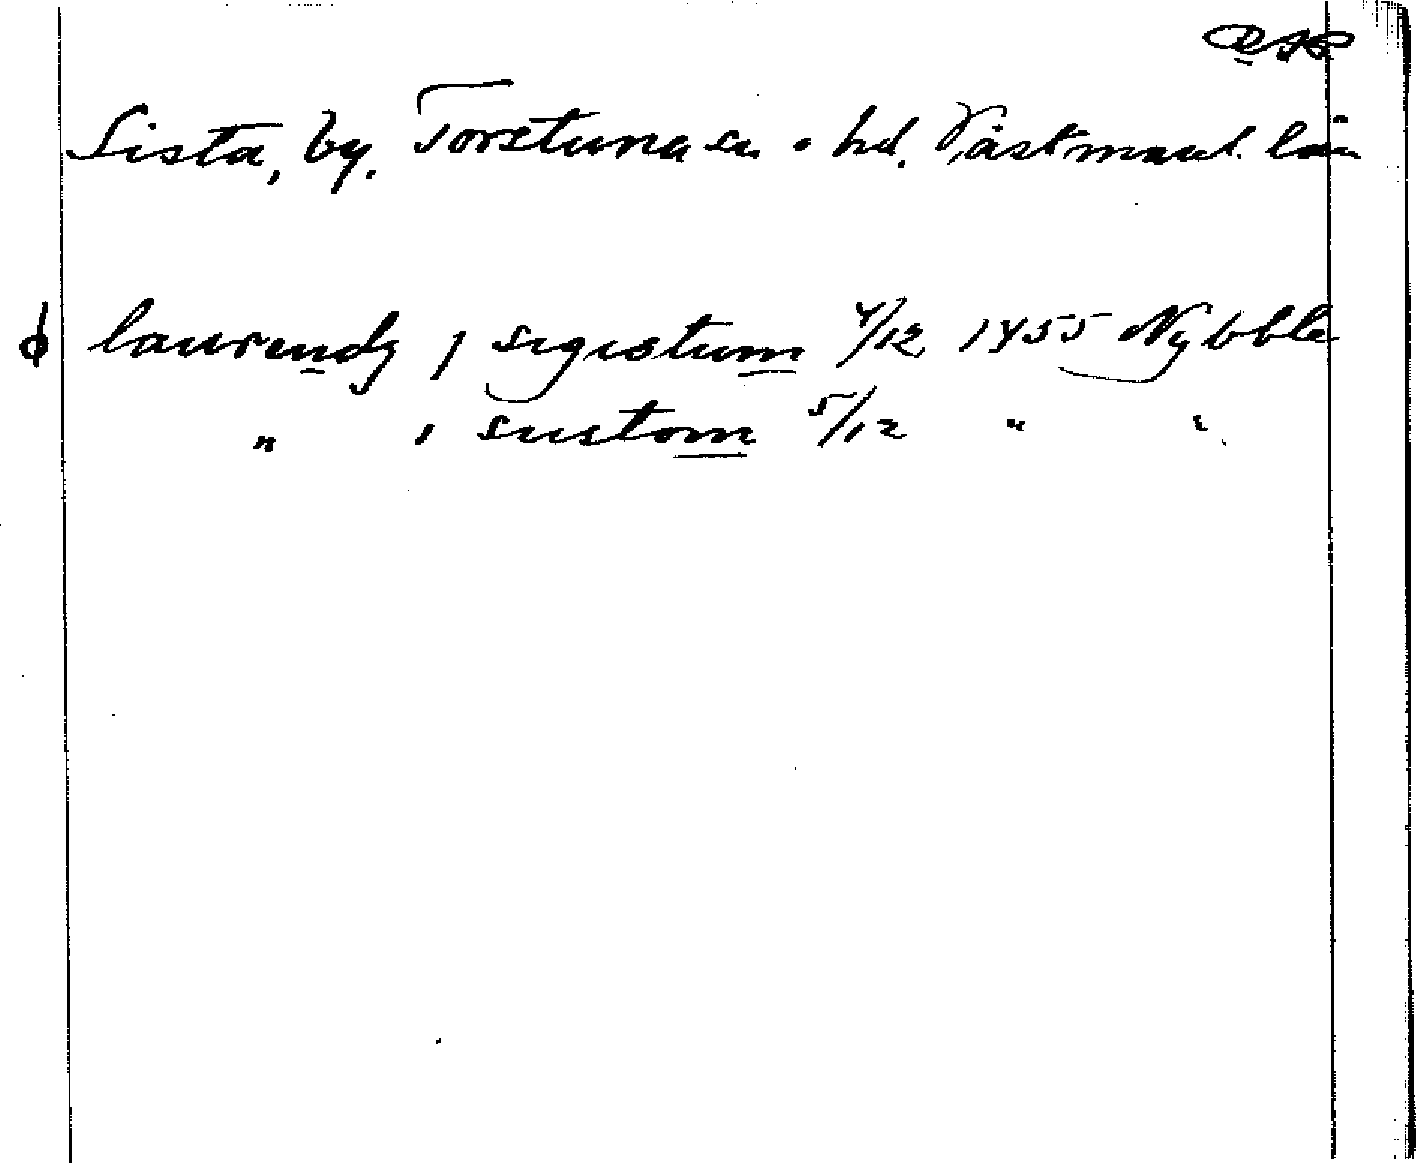 Sista, by. Torstuna sn. o hd. Västmanl. län
ɸ laurendz j sigistum 4/12 1455 Nybble
" i sustom 5/12 " "